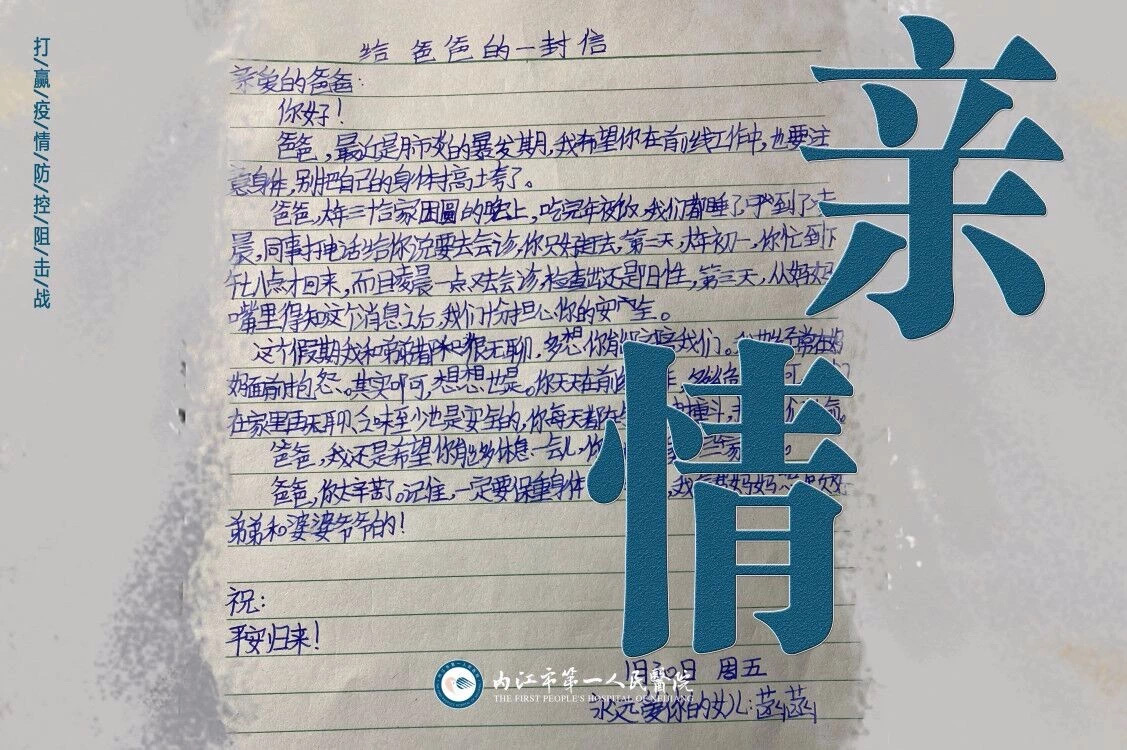 打/赢/疫/情/防/控/阻/击/战
亲情
给爸爸的一封信
亲爱的爸爸:
你好!
爸爸,最近是肺炎的暴发期,我希望你在前线工作中,也要注
意身体,别把自己的身体搞垮了。
爸爸,大年三十合家团圆的晚上,吃完年夜饭,我们都睡了,
晨,同事打电话给你说要去会诊,你只好去,第二天,大年初一,你忙到下
午八点才回来,而且凌晨一点又去会诊,检查出还是阳性,第三天,从妈妈
嘴里得知这个消息之后,我们十分担心你的安产生。
这个假期我和弟弟都和很无聊,多想你能陪我们。常在妈
妈面前抱怨。其实叩可,想想也是。你天天在前
在家里再无聊乏味至少也是安全的,你每天都在
爸爸,我还是希望你能多休息一会儿。
爸爸,你太辛苦了。记住,一定要保重身体 妈妈
弟弟和婆婆爷爷的!
祝:
平安归来!
周五
永远爱你的女儿:菡菡
内江市第一人民醫院
THE FIRST PEOPLE'S HOSPITAL OF NEIJIANG